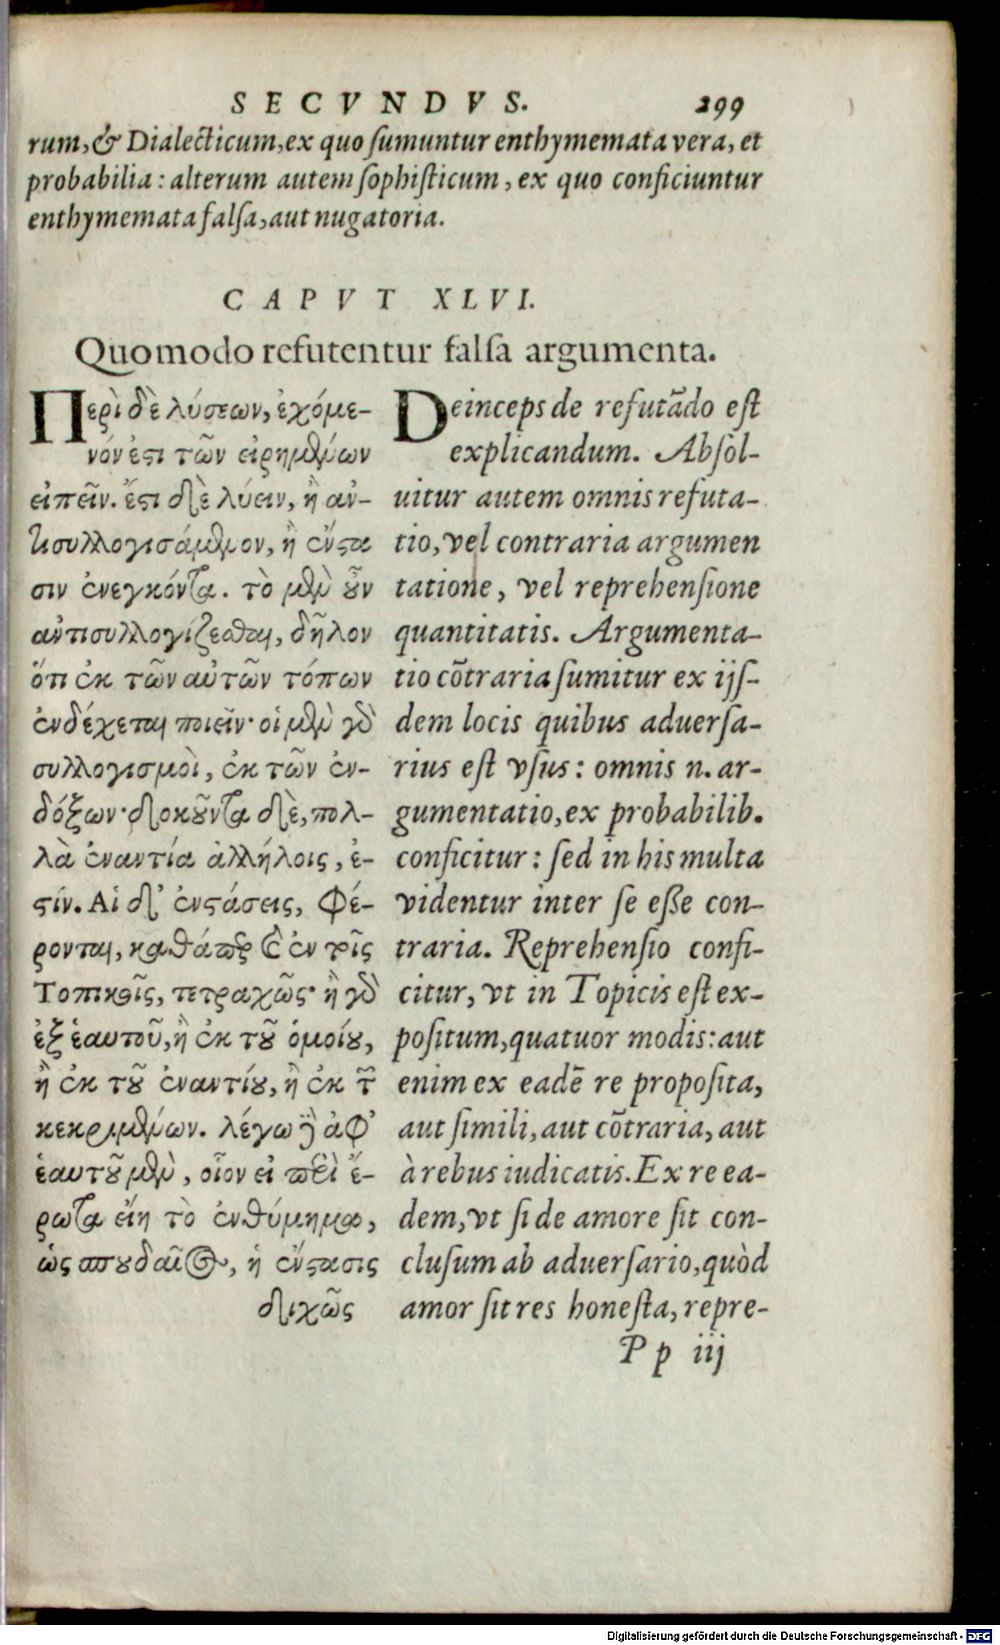 SECVNDVS. 299
rum, & Dialecticum, ex quo ſumuntur enthymemata vera, et
probabilia: alterum autem ſophiſticum, ex quo conficiuntur
enthymemata falſa, aut nugatoria.
CAPVT XLVI.
Quomodo refutentur falſa argumenta.
Περὶ δὲ λύσεων, ἐχόμε-
νόν ἐστι τῶν εἰρημένων
εἰπεῖν. ἔστι δὲ λύειν, ἢ ἀν-
τισυλλογισάμενον, ἢ ἔνστα
σιν ἐνεγκόντα. τὸ μὲν οὖν
ἀντισυλλογίζεσθαι, δῆλον
ὅτι ἐκ τῶν αὐτῶν τόπων
ἐνδέχεται ποιεῖν· οἱ μὲν γὰρ
συλλογισμοὶ, ἐκ τῶν ἐν-
δόξων· δοκοῦντα δὲ, πολ-
λὰ ἐναντία ἀλλήλοις, ἐ-
στίν. Αἱ δ' ἐνστάσεις, φέ-
ρονται, καθάπερ καὶ ἐν τοῖς
Τοπικοῖς, τετραχῶς· ἢ γὰρ
ἐξ ἑαυτοῦ, ἢ ἐκ τοῦ ὁμοίου,
ἢ ἐκ τοῦ ἐναντίου, ἢ ἐκ τῶν
κεκριμένων. λέγω δὲ ἀφ'
ἑαυτοῦ μὲν, οἷον εἰ περὶ ἔ-
ρωτα εἴη τὸ ἐνθύμημα,
ὡς σπουδαῖος, ἡ ἔνστασις
διχῶς
Deinceps de refutãdo eſt
explicandum. Abſol-
uitur autem omnis refuta-
tio, vel contraria argumen
tatione, vel reprehenſione
quantitatis. Argumenta-
tio cõtraria ſumitur ex ijſ-
dem locis quibus aduerſa-
rius eſt vſus: omnis n. ar-
gumentatio, ex probabilib.
conficitur: ſed in his multa
videntur inter ſe eſſe con-
traria. Reprehenſio confi-
citur, vt in Topicis eſt ex-
poſitum, quatuor modis: aut
enim ex eadẽ re propoſita,
aut ſimili, aut cõtraria, aut
à rebus iudicatis. Ex re ea-
dem, vt ſi de amore ſit con-
cluſum ab aduerſario, quòd
amor ſit res honeſta, repre-
Pp iij
Digitalisierung gefördert durch die Deutsche Forschungsgemeinschaft - DFG